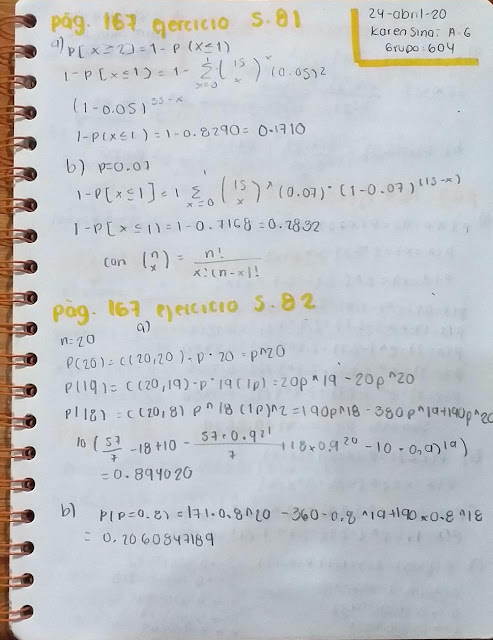 pág. 167 ejercicio 5.81
24-abril-20
Karen Sinai A.G
Grupo: 604
a) P[x≥2] = 1-P (x≤1)
1-P[x≤1] = 1- Σ x=0 1 (15 x) x (0.05)2
(1-0.05) 35-x
1-P(x≤1) = 1-0.8290 = 0.1710
b) P=0.07
1-P[x≤1] = 1 Σ x=0 1 (15 x) x (0.07) · (1-0.07) (15-x)
1-P[x≤1) = 1-0.7168 = 0.2832
con (n x) = n! / x!(n-x)!
pág. 167 ejercicio 5.82
a)
n=20
P(20) = C(20,20) - P · 20 = p^20
P(19) = C(20,19) - P^19(1p) = 20p^19 - 20p^20
P(18) = C(20,8) P^18(1p)^2 = 190p^18 - 380p^19+190p^20
10 (57/7 -18+10 - 57·0.921/7 +18x0.9 20 - 10 - 0,9) 19)
= 0.894020
b) P(P=0.8) = 171·0.8^20 - 360-0.8^19+190x0.8^18
= 0.2060847189